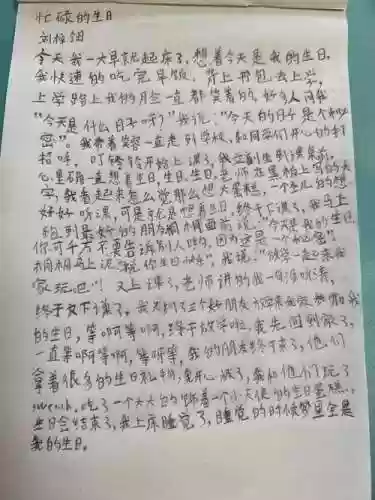 忙碌的生日
刘梓
今天我一大早就起床了,想着今天是我的生日。
我快速的吃完早饭,背上书包去上学。
上学路上我的脸一直都笑着的,好多人问我
“今天是什么日子呀?”我说:“今天的日子是个秘
密”。我带着笑容一直走到学校,和同学们开心的打
招呼,叮铃铃开始上课了,我立刻坐到课桌前,
心里一直想着生日,生日,生日,老师在黑板上写的大
字,我看起来怎么觉那么想大蛋糕,一个多儿的想
好好听课,可是就是想着生日。终于下课了,我马上
跑到最好的朋友桐桐面前说:“今天是我的生日,
你可千万不要告诉别人哟,因为这是一个秘密”
桐桐马上说“祝你生日快乐”我说:“放学一起来我
家玩吧!”又上课了,老师讲的我一句没听清,
终于又下课了。我又叫了三个好朋友放学来我家参加我
的生日,等啊等啊,终于放学啦,我先回到家了,
一直等啊等啊,等呀等,我的朋友终于来了,他们
拿着很多的生日礼物,我开心极了,我和他们玩了
,吃了一个大大的带着一个小天使的生日蛋糕。
生日会结束了,我上床睡觉了,睡觉的时候梦里全是
我的生日。